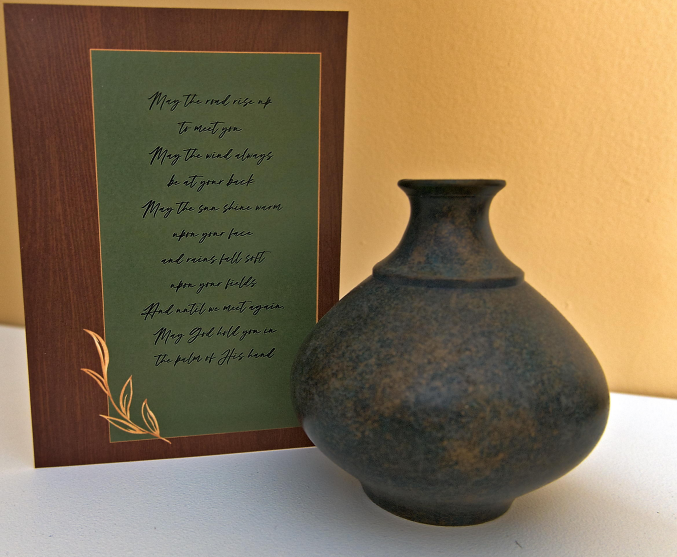 May the road rise up
to meet you
May the wind always
be at your back
May the sun shine warm
upon your face
and rains fall soft
upon your fields
And until we meet again
May God hold you in
the palm of His hand